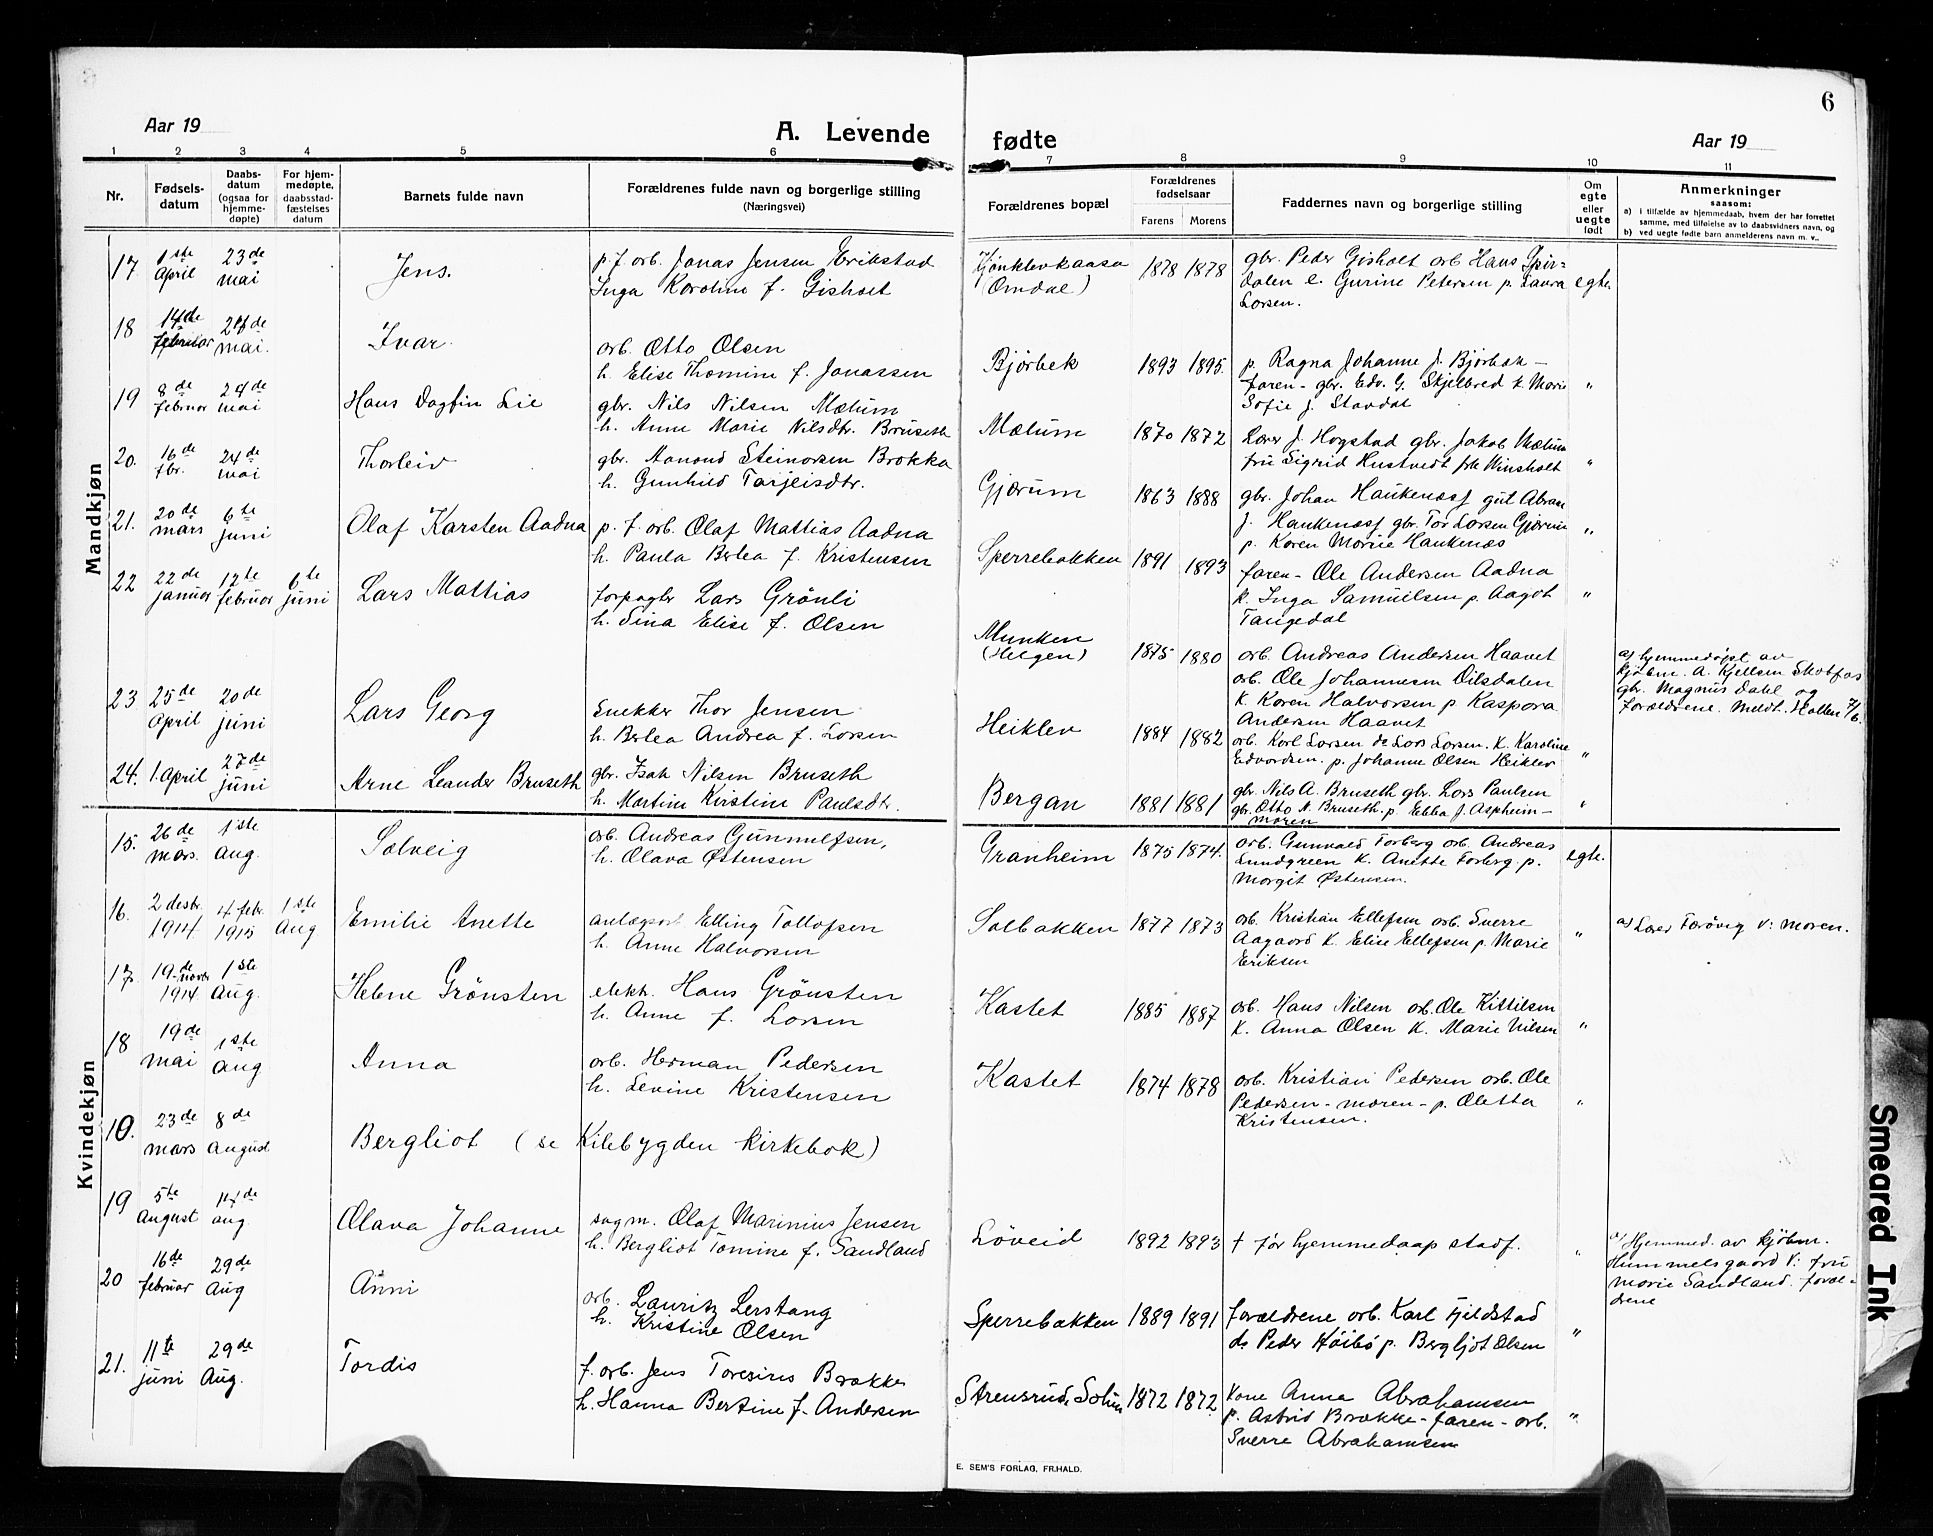 6
Aar 19
A. Levende
fødte
Aar 19
1 2 3 4 5 6 7 8 9 10 11
Nr.
Fødsels-
datum
Daabs-
datum
(ogsaa for
hjemme-
døpte)
For hjem-
medøpte,
daabsstad-
fæstelses
datum
Barnets fulde navn
Forældrenes fulde navn og borgerlige stilling
(Næringsvei)
Forældrenes bopæl
Forældrenes
fødselsaar
Farens Morens
Faddernes navn og borgerlige stilling
Om
egte
eller
uegte
født
Anmerkninger
saasom:
a) i tilfælde av hjemmedaab, hvem der har forrettet
samme, med tilføielse av to daabsvidners navn, og
b) ved uegte fødte barn anmelderens navn m. v..
Mandkjøn
17 1ste April 23de mai
Jens.
p. f. orb. Jonas Jensen Erikstad
Inga Karoline f. Gisholt
(Omdal)
1878 1878
gbr. Peder Gisholt orb Hans
dalen e. Gurine Petersen p. Laura
Larsen.
egte.
18 14de februar 24de mai.
Ivar.
orb. Otto Olsen
h. Elise Thomine f. Jonassen
Bjørbek
1893 1895.
p. Ragna Johanne J. Bjørbek –
faren – gbr. Edv. G. Skjelbred k. Marie
Sofie J. Stavdal
"
19 8de februar 24de mai
Hans Dagfin Lie
gbr. Nils Nilsen Mælum
h. Anne Marie Nilsdtr. Bruseth
Mælum
1870 1872
Lærer J. Hogstad gbr. Jakob Mælum
fru Sigrid Hustvedt frk Winsholt
"
20. 16de fbr. 24de mai
Thorleiv
gbr. Aanond Steinarsen Brokka
h. Gunhild Tarjeisdtr.
Gjærum
1863 1888
gbr. Johan Haukenæss gut Abram
J. Haukenæss gbr. Tor Larsen Gjærum
p. Karen Marie Haukenæs
"
21. 20de mars 6te juni
Olaf Karsten Aadna
p. f. orb. Olaf Mattias Aadna
h. Paula Berlea f. Kristensen
Sperrebakken
1891 1893
faren – Ole Andersen Aadna
k. Inga Samuelsen p. Aagot
Tangedal
"
22 22de januar 12te februar 6te juni
Lars Mattias
forpagter Lars Grönli
h. Sina Elise f. Olsen
Munken
(Helgen)
1875 1880
orb. Andreas Andersen Haavet
orb. Ole Johannesen Dilsdalen
k. Karen Halvorsen p. Kaspara
Andersen Haavet
a) hjemmedøpt av
kjøbm. A. Kjellsen Skotfos
gbr. Magnus Dahl og
forældrene. Meldt. Hollen 7/6.
23 25de April 20de juni
Lars Georg
Snekker Thor Jensen
h. Berlea Andrea f. Larsen
Heiklev
1884 1882
orb. Karl Larsen do Lars Larsen. k. Karoline
Edvardsen. p. Johanne Olsen Heiklev
"
24. 1. April 27de juni
Arne Leander Bruseth
gbr. Isak Nilsen Bruseth
h. Martine Kirstine Paulsdtr.
Bergan
1881 1881
gbr. Nils A. Bruseth gbr. Lars Paulsen
gbr. Otto N. Bruseth. p. Ebba J. Aspheim –
moren
"
Kvindekjøn
15. 26de mars. 1ste Aug.
Solveig
orb. Andreas Gunnulfsen,
h. Olava Østensen
Granheim
1875 1874.
orb. Gunvald Forberg orb. Andreas
Lundgreen k. Anette Forberg. p.
Margit Østensen.
egte.
16. 2 desbr. 1914 4 febr. 1915 1ste Aug
Emilie Anette
anlægsarb. Elling Tollofsen
h. Anne Halvorsen
Solbakken
1877 1873
orb. Kristian Ellefsen orb. Sverre
Aagaard k. Elise Ellefsen p. Marie
Eriksen
"
a) Lærer Farövig V: moren.
17. 19de novbr 1914 1ste Aug.
Helene Grönsten
elekh. Hans Grönsten
h. Anne f. Larsen
Kastet
1885 1887
orb. Hans Nilsen orb. Ole Kittilsen
k. Anna Olsen k. Marie Nilsen
"
18 19de mai 1ste Aug
Anna
orb. Herman Pedersen
h. Levine Kristensen
Kastet
1874 1878
orb. Kristian Pedersen orb. Ole
Pedersen – moren – p. Oletta
Kristensen.
"
10. 23de mars 8de August
Bergliot (se Kilebygden kirkebok)
19 5te August 11de aug.
Olava Johanne
sagm. Olaf Marinius Jensen
h. Bergliot Tomine f. Sandland
Löveid
1892 1893
† før hjemmedaap stadf.
"
a) Hjemmed. av kjöbm.
Hummelsgaard V: fru
Marie Sandland. foræl-
drene
20 16de februar 29de Aug
Anni
orb. Lauritz Lerstang
h. Kristine Olsen
Sperrebakken
1889 1891
forældrene orb. Karl Fjeldstad
do Peder Höibö p. Bergljot Olsen
"
21. 11te juni 29de Aug.
Tordis
f. orb. Jens Toresius Brække
h. Hanna Bertine f. Andersen
Strensrud, Solum
1872 1872
Kone Anna Abrahamsen
p. Astrid Brække – faren – orb.
Sverre Abrahamsen
"
E. SEM'S FORLAG, FR.HALD.
Smeared Ink